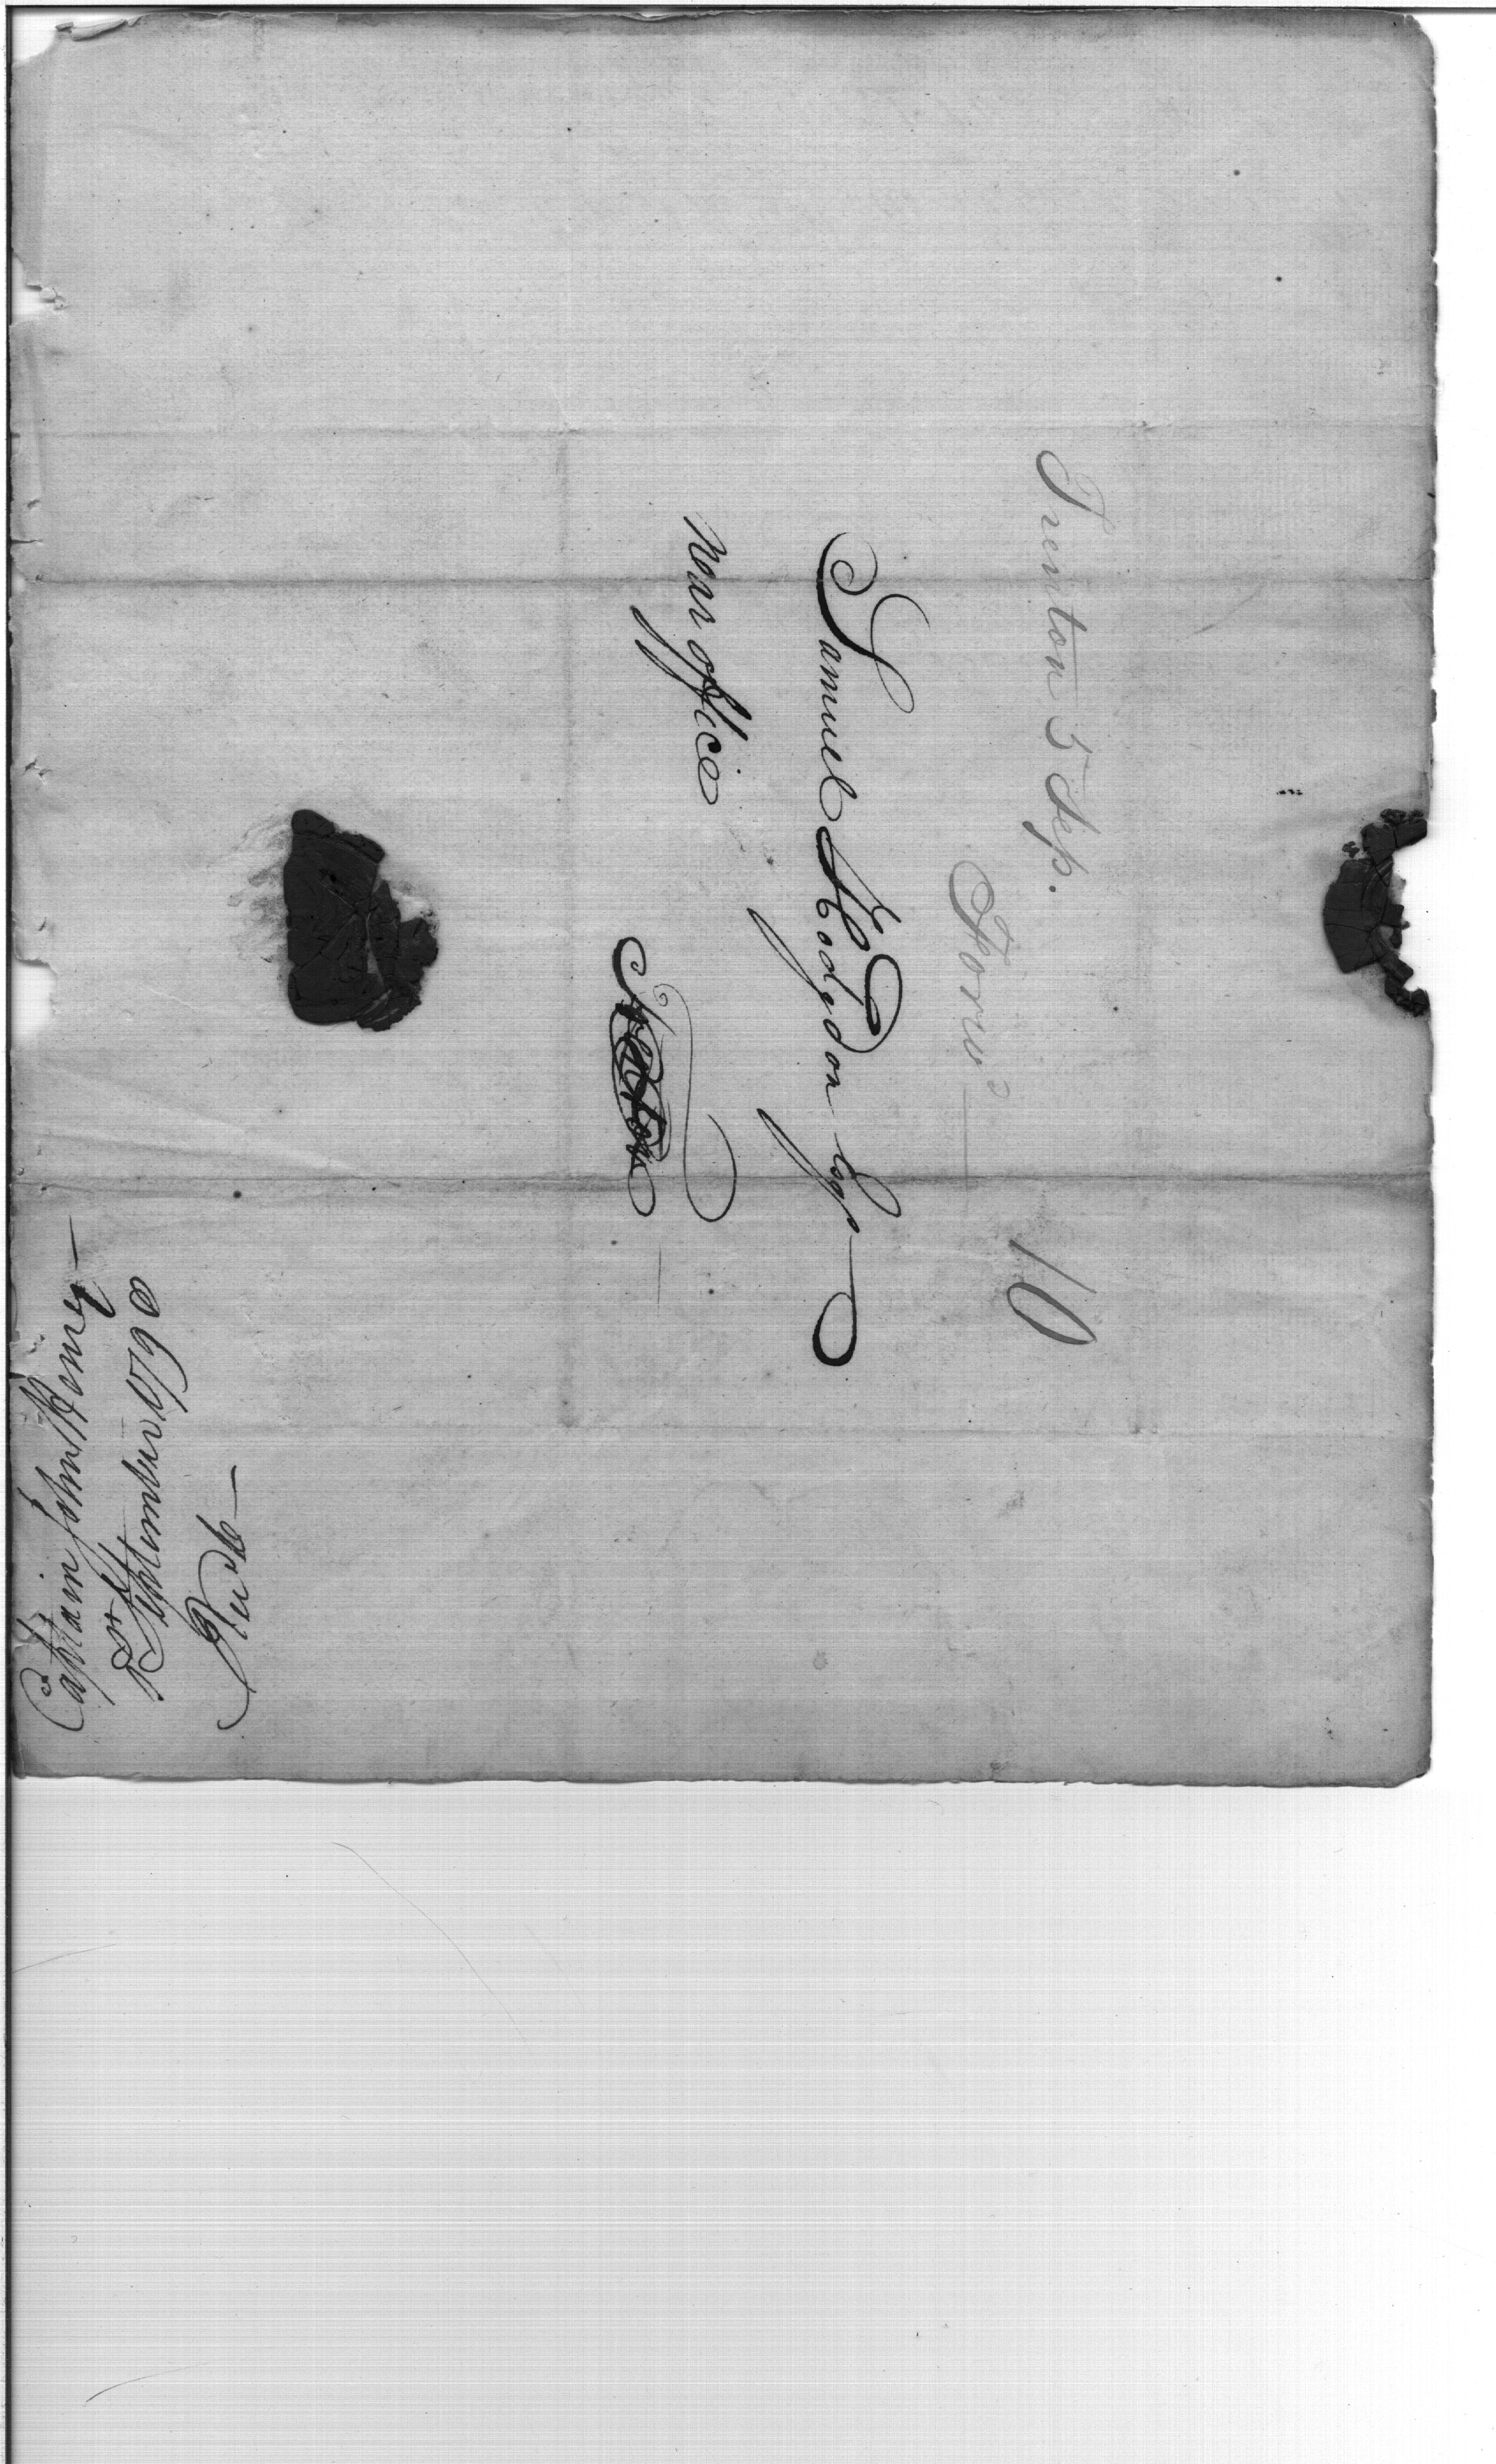 Trenton 5 Sep.
Forwd
10
Samuel Hodgdon Esqr
War office
Captain John Henry
5th September 1798